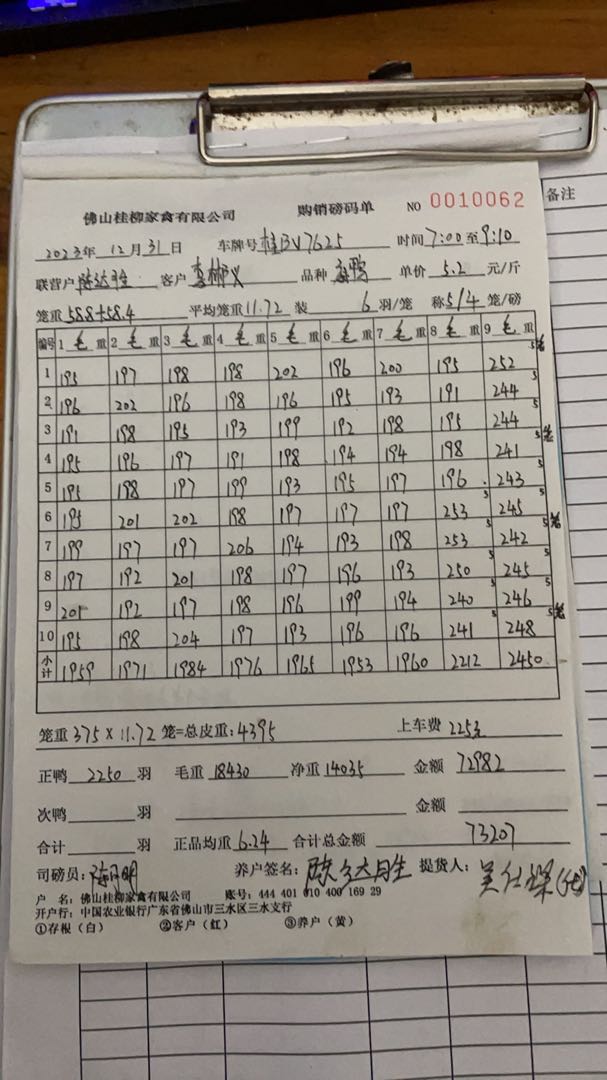 佛山桂柳家禽有限公司 购销磅码单 NO 0010062
2023年 12月 31日 车牌号 桂BV7625 时间 7:00 至 9:10
联营户 陈达胜 客户 品种 单价 5.2 元/斤
笼重 588+58.4 平均笼重 11.72 装 6 羽/笼 称 5/4 笼/磅
编号 1 毛重 2 毛重 3 毛重 4 毛重 5 毛重 6 毛重 7 毛重 8 毛重 9 毛重
5笼
1 195 197 198 198 202 196 200 195 252
5
2 196 202 196 198 196 195 193 191 244
5
3 191 198 195 193 199 192 198 195 244
5笼
4 195 196 197 191 198 194 194 198 241
5
5 195 198 197 199 193 195 197 196 243
5 5
6 195 201 202 198 197 197 197 253 245
5 5笼
7 199 197 197 206 194 193 198 253 242
5 5
8 197 192 201 198 197 196 193 250 245
5 5
9 201 192 197 198 196 199 194 240 246
5 5笼
10 195 198 204 197 193 196 196 241 248
小计 1959 1971 1984 1976 1965 1953 1960 2212 2450
笼重 375 × 11.72 笼=总皮重: 4395 上车费 2253
正鸭 2250 羽 毛重 18430 净重 14035 金额 72982
次鸭 羽 金额
合计 羽 正品均重 6.24 合计总金额 73207
司磅员: 养户签名: 提货人:
户 名: 佛山桂柳家禽有限公司 账号: 444 401 010 400 169 29
开户行: 中国农业银行广东省佛山市三水区三水支行
①存根（白） ②客户（红） ③养户（黄）
备注